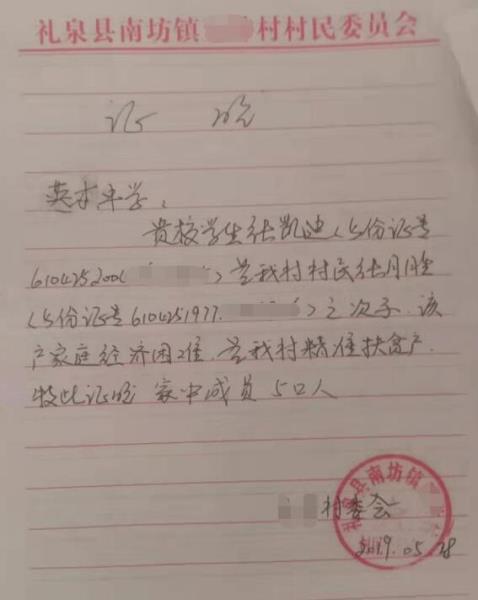 礼泉县南坊镇 村村民委员会
证 明
英才中学:
贵校学生张凯迪(身份证号
610425200( )是我村村民张月胜
(身份证号6104251977. )之次子.该
户家庭经济困难.是我村精准扶贫户.
特此证明 家中成员5口人
村委会
2019.05.28
礼泉县南坊镇